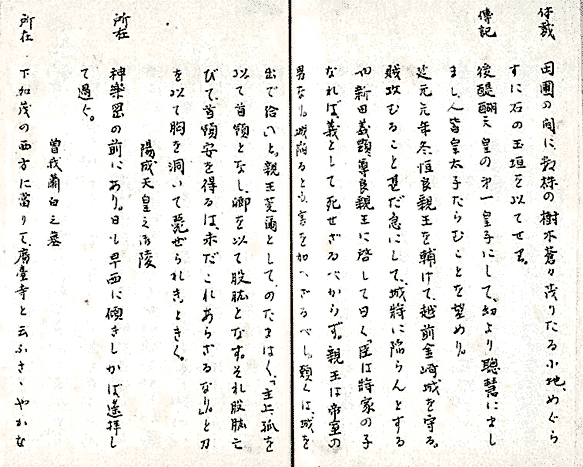 体裁　田圃の間に数株の樹木蒼々茂りたる小地、めぐら
すに石の玉垣を以てせり。
傳記　後醍醐天皇の第一皇子にして、幼より聰慧にまし
まし、人皆皇太子たらむことを望めり。
延元元年冬恒良親王を輔けて、越前金崎城を守る。
賊攻むること甚だ急にして、城将に陥らんとする
や新田義顕尊良親王に啓して曰く臣は将家の子
なれば、義として死せざるべからず。親王は帝室の
男なり。城陥ると害を加へざるべし。願くは、城を
出で給へ」と。親王莞爾としてのたまはく、「主上、孤を
以て首領となし、卿を以て股肱となす。それ股肱亡
びて、首領安を得るは、未だこれあらざるなり」と刀
を以て胸を洞いて薨ぜられき、ときく。
陽成天皇之御陵
所在　神楽岡の前にあり。日も早西に傾きしかば遙拝し
て過ぐ。
曽我蕭白之墓
所在　下加茂の西方に當りて、廣臺寺と云ふさゝやかな